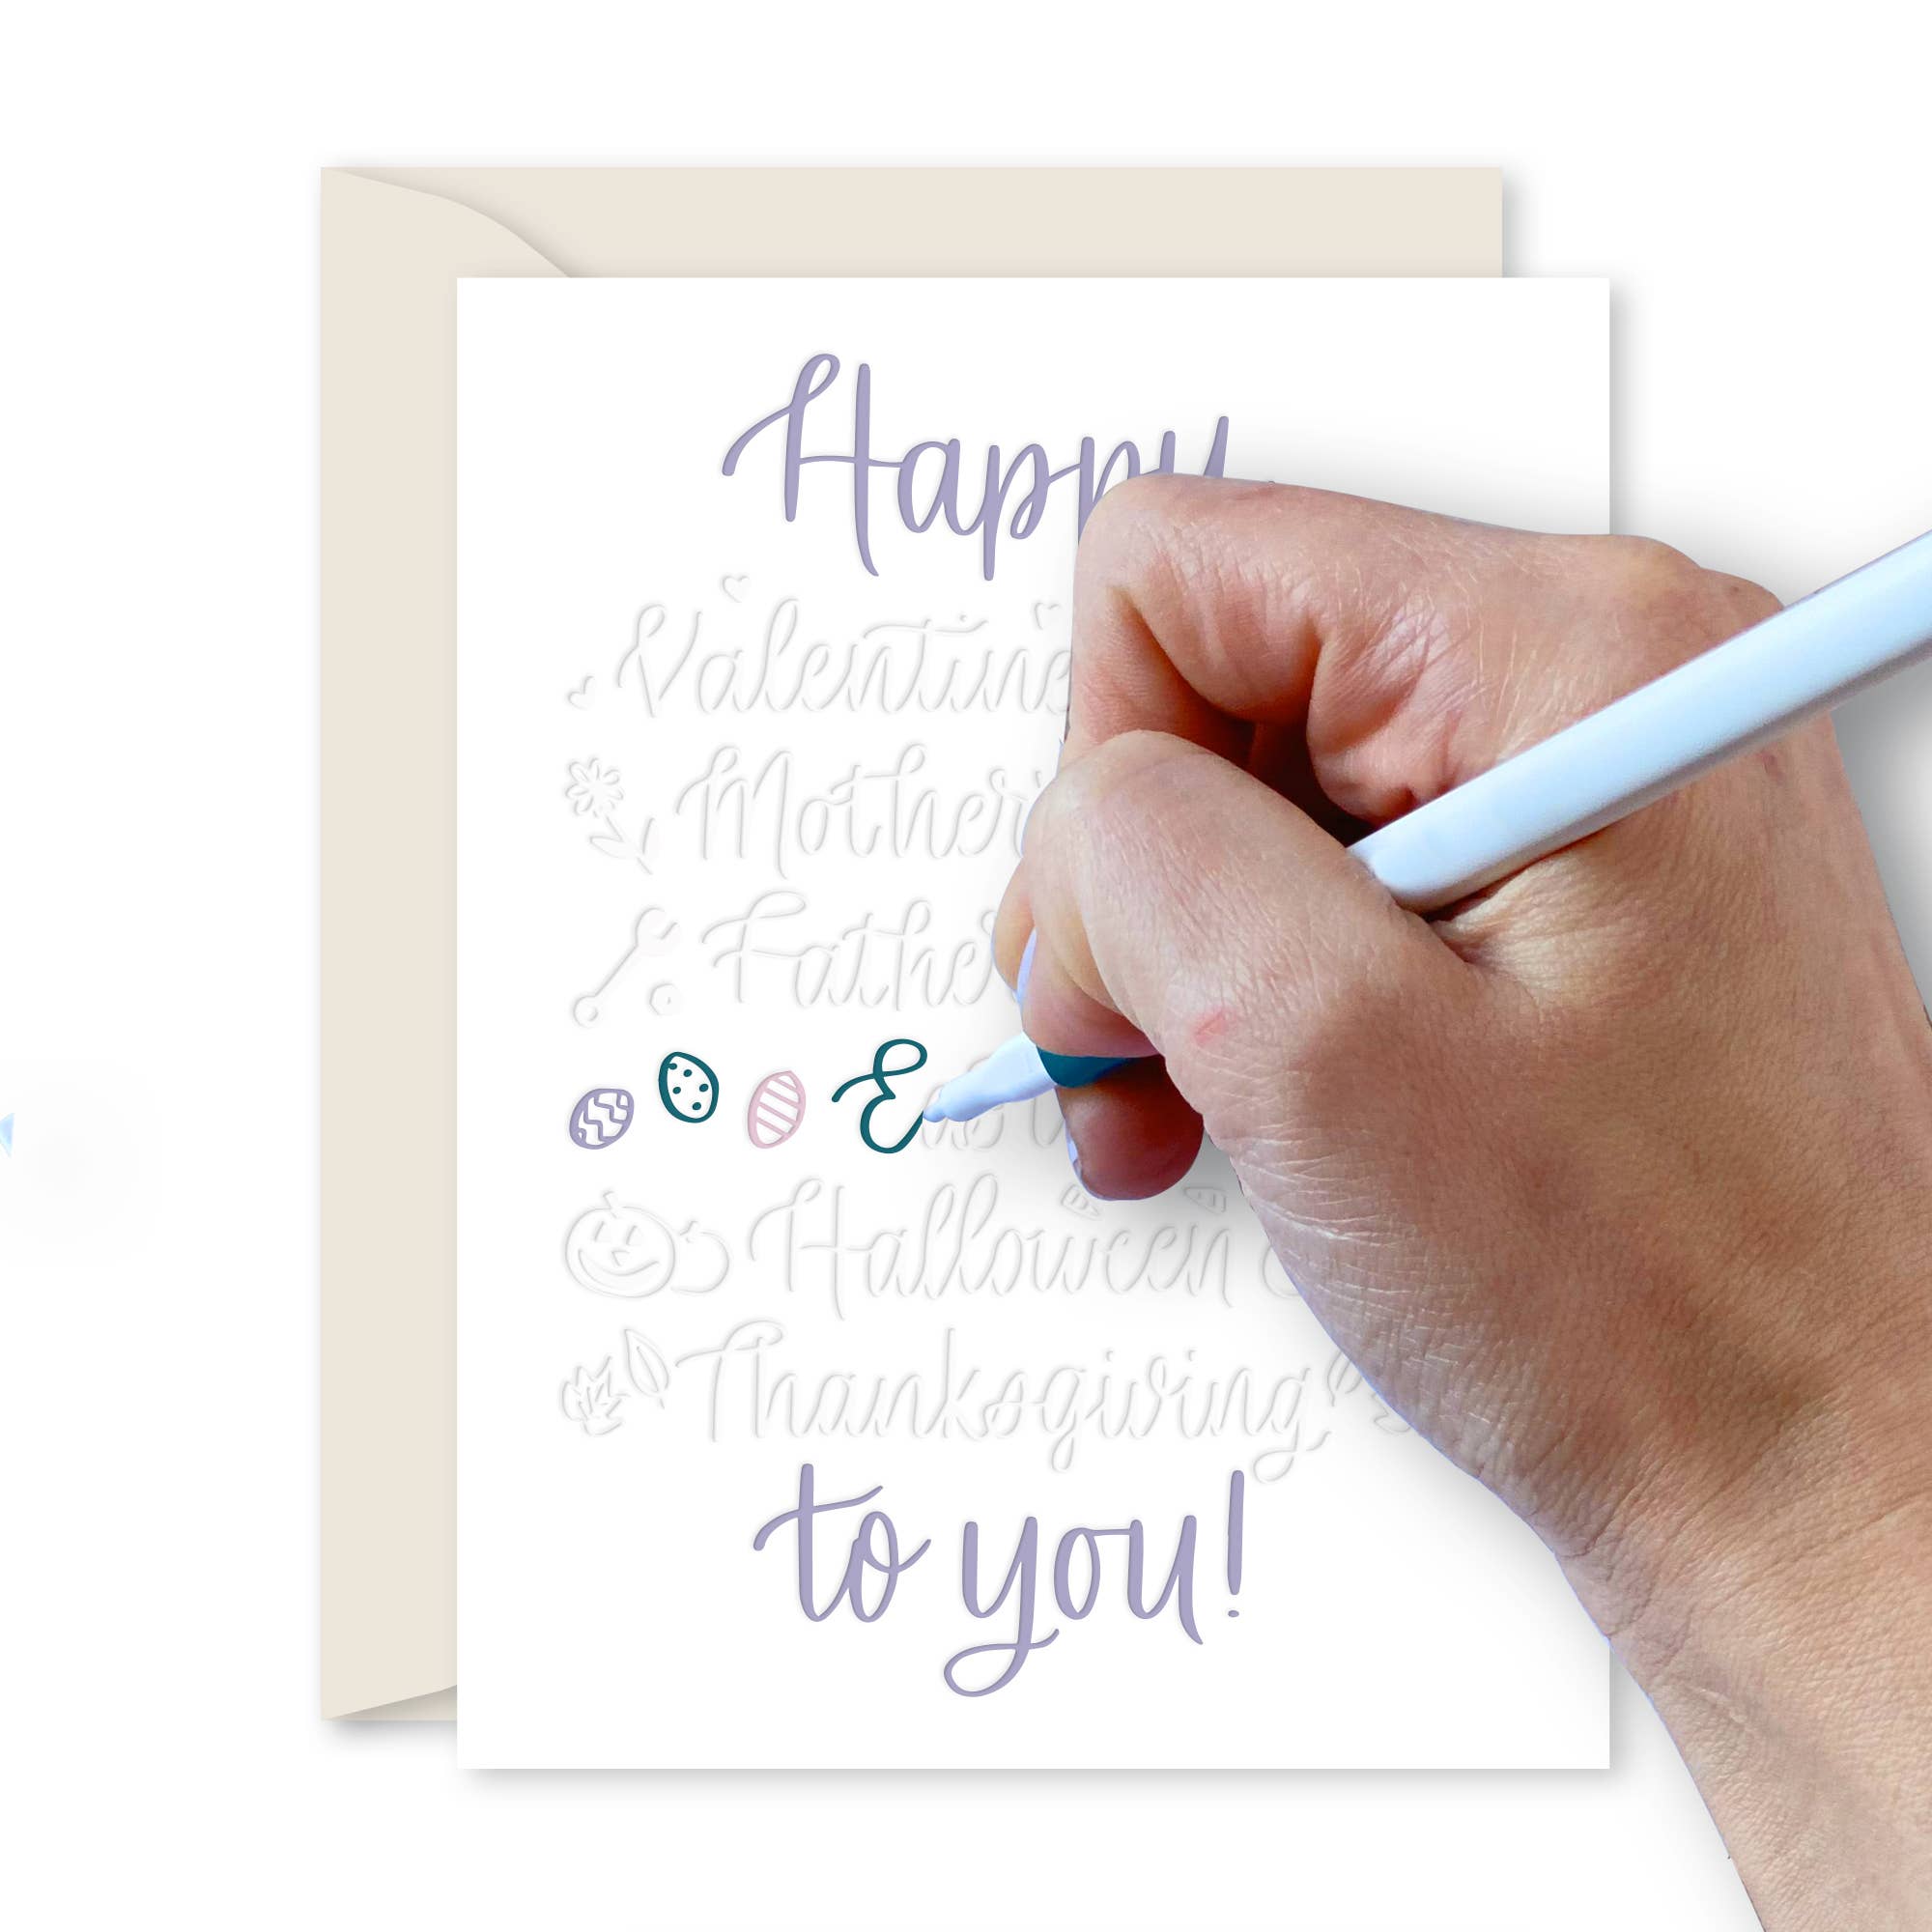 Happy
Valentine
Mother's
Father
Eas
Halloween
Thanksgiving
to you!